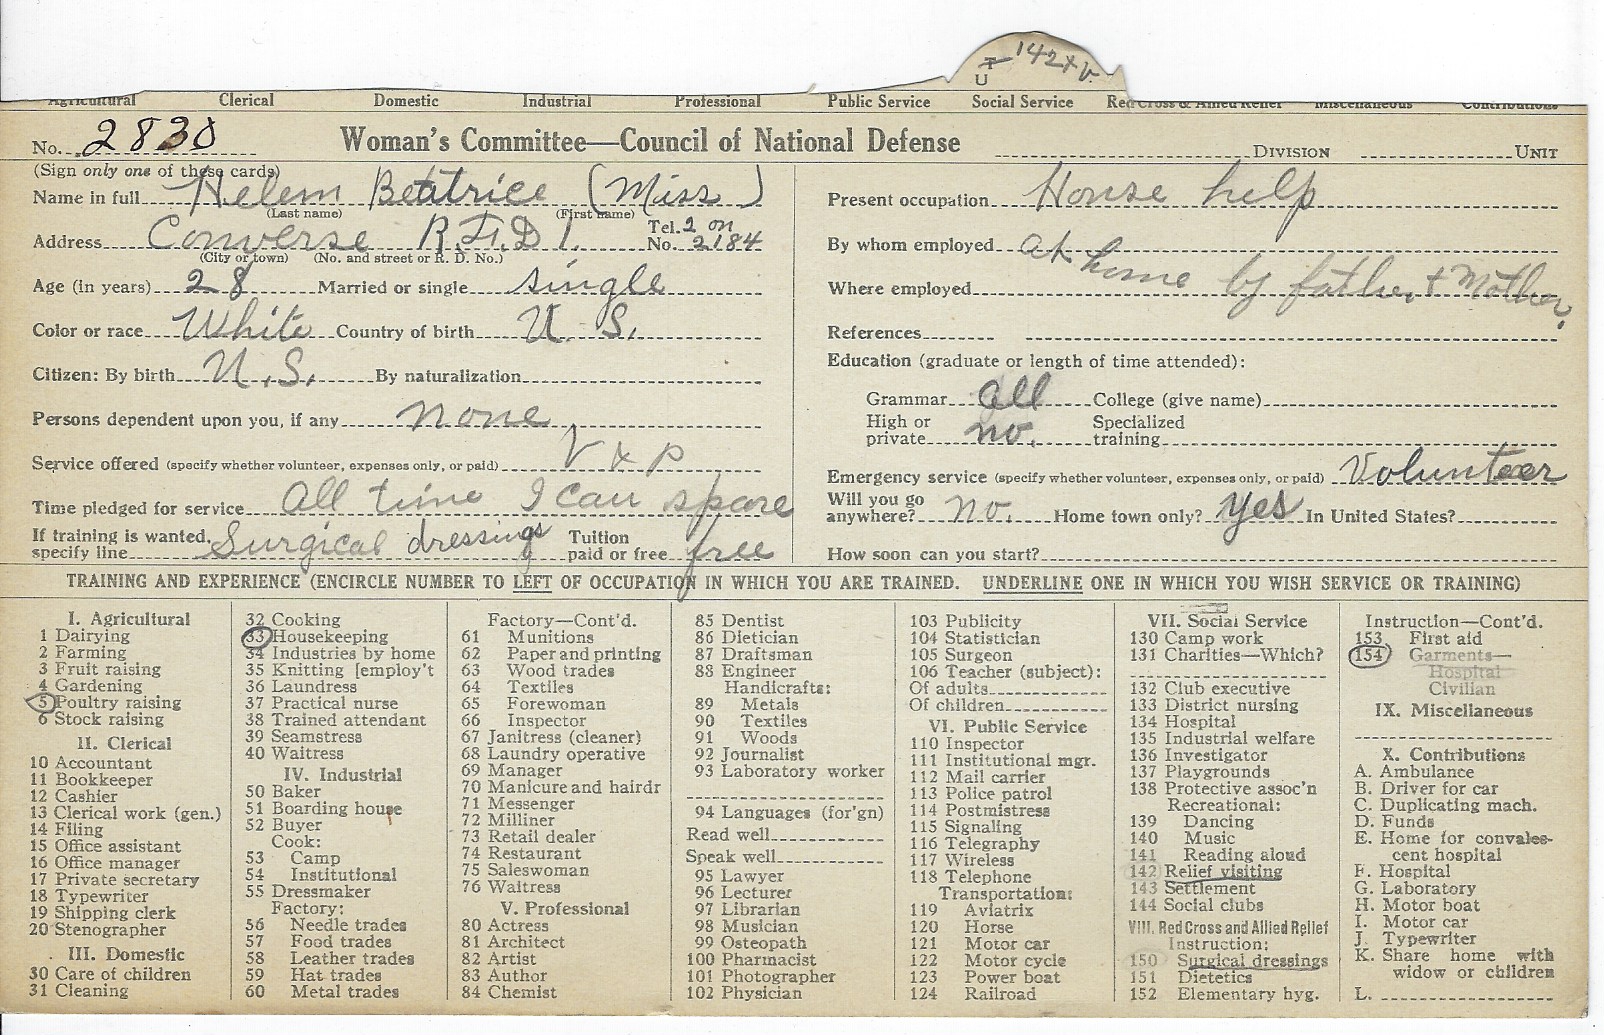 T 142 + V.
U
Agricultural Clerical Domestic Industrial Professional Public Service Social Service Red Cross & Allied Relief Miscellaneous Contributions
No. 2830 Woman's Committee—Council of National Defense DIVISION UNIT
(Sign only one of these cards)
Name in full Helem Beatrice (Miss)
(Last name) (First name)
Address Converse R.F.D 1. Tel. No. 2 on 2184
(City or town) (No. and street or R. D. No.)
Age (in years) 28 Married or single single
Color or race White Country of birth U. S.
Citizen: By birth U.S. By naturalization
Persons dependent upon you, if any none
Service offered (specify whether volunteer, expenses only, or paid) V & P
Time pledged for service All time I can spare
If training is wanted, specify line Surgical dressings Tuition paid or free free
Present occupation House help
By whom employed at home by father & Mother.
Where employed
References
Education (graduate or length of time attended):
Grammar all College (give name)
High or private no. Specialized training
Emergency service (specify whether volunteer, expenses only, or paid) Volunteer
Will you go anywhere? no. Home town only? yes In United States?
How soon can you start?
TRAINING AND EXPERIENCE (ENCIRCLE NUMBER TO LEFT OF OCCUPATION IN WHICH YOU ARE TRAINED. UNDERLINE ONE IN WHICH YOU WISH SERVICE OR TRAINING)
I. Agricultural
1 Dairying
2 Farming
3 Fruit raising
4 Gardening
5 Poultry raising
6 Stock raising
II. Clerical
10 Accountant
11 Bookkeeper
12 Cashier
13 Clerical work (gen.)
14 Filing
15 Office assistant
16 Office manager
17 Private secretary
18 Typewriter
19 Shipping clerk
20 Stenographer
III. Domestic
30 Care of children
31 Cleaning
32 Cooking
33 Housekeeping
34 Industries by home
35 Knitting [employ't
36 Laundress
37 Practical nurse
38 Trained attendant
39 Seamstress
40 Waitress
IV. Industrial
50 Baker
51 Boarding house
52 Buyer
Cook:
53 Camp
54 Institutional
55 Dressmaker
Factory:
56 Needle trades
57 Food trades
58 Leather trades
59 Hat trades
60 Metal trades
Factory—Cont'd.
61 Munitions
62 Paper and printing
63 Wood trades
64 Textiles
65 Forewoman
66 Inspector
67 Janitress (cleaner)
68 Laundry operative
69 Manager
70 Manicure and hairdr
71 Messenger
72 Milliner
73 Retail dealer
74 Restaurant
75 Saleswoman
76 Waitress
V. Professional
80 Actress
81 Architect
82 Artist
83 Author
84 Chemist
85 Dentist
86 Dietician
87 Draftsman
88 Engineer
Handicrafts:
89 Metals
90 Textiles
91 Woods
92 Journalist
93 Laboratory worker
94 Languages (for'gn)
Read well
Speak well
95 Lawyer
96 Lecturer
97 Librarian
98 Musician
99 Osteopath
100 Pharmacist
101 Photographer
102 Physician
103 Publicity
104 Statistician
105 Surgeon
106 Teacher (subject):
Of adults
Of children
VI. Public Service
110 Inspector
111 Institutional mgr.
112 Mail carrier
113 Police patrol
114 Postmistress
115 Signaling
116 Telegraphy
117 Wireless
118 Telephone
Transportation:
119 Aviatrix
120 Horse
121 Motor car
122 Motor cycle
123 Power boat
124 Railroad
VII. Social Service
130 Camp work
131 Charities—Which?
132 Club executive
133 District nursing
134 Hospital
135 Industrial welfare
136 Investigator
137 Playgrounds
138 Protective assoc'n
Recreational:
139 Dancing
140 Music
141 Reading aloud
142 Relief visiting
143 Settlement
144 Social clubs
VIII. Red Cross and Allied Relief
Instruction:
150 Surgical dressings
151 Dietetics
152 Elementary hyg.
Instruction—Cont'd.
153 First aid
154 Garments—
Hospital
Civilian
IX. Miscellaneous
X. Contributions
A. Ambulance
B. Driver for car
C. Duplicating mach.
D. Funds
E. Home for convales-
cent hospital
F. Hospital
G. Laboratory
H. Motor boat
I. Motor car
J. Typewriter
K. Share home with
widow or children
L.